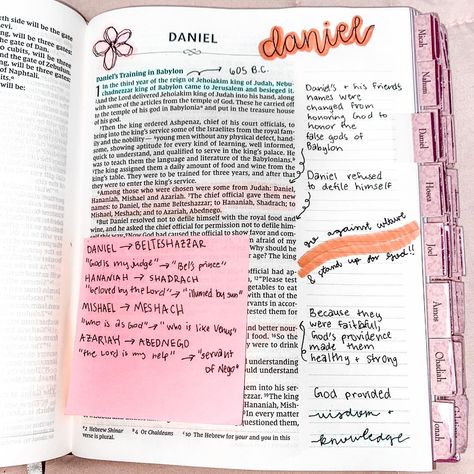 rth side will be the gate
will be three
of Naphtali.
will be:
DANIEL
daniel
Daniel's Training in Babylon → 605 B.C.
1 In the third year of the reign of Jehoiakim king of Judah, Nebu-
chadnezzar king of Babylon came to Jerusalem and besieged it.
And the Lord delivered Jehoiakim king of Judah into his hand, along
with some of the articles from the temple of God. These he carried off
to the temple of his god in Babylonia and put in the treasure house
of his god.
Then the king ordered Ashpenaz, chief of his court officials, to
bring into the king's service some of the Israelites from the royal fam-
ily and the nobility — young men without any physical defect, hand-
some, showing aptitude for every kind of learning, well informed,
quick to understand, and qualified to serve in the king's palace. He
was to teach them the language and literature of the Babylonians.
The king assigned them a daily amount of food and wine from the
king's table. They were to be trained for three years, and after that
they were to enter the king's service.
Among those who were chosen were some from Judah: Daniel,
Hananiah, Mishael and Azariah. The chief official gave them new
names: to Daniel, the name Belteshazzar; to Hananiah, Shadrach; to
Mishael, Meshach; and to Azariah, Abednego.
But Daniel resolved not to defile himself with the royal food and
wine, and he asked the chief official for permission not to defile him-
self this way. Now God had caused the official to show favor and com-
Daniel's + his friends
names were
changed from
honoring God to
honor the
false gods of
Babylon
Daniel refused
to defile himself
go against culture
& stand up for God!!
Because they
were faithful,
God's providence
made them
healthy + strong
God provided
wisdom +
knowledge
DANIEL → BELTESHAZZAR
"God is my judge" → "Bel's prince"
HANANIAH → SHADRACH
"beloved by the Lord" → "illumed by sun"
MISHAEL → MESHACH
"who is as God" → "who is like Venus"
AZARIAH → ABEDNEGO
"the Lord is my help" → "servant
of Nego"
afraid of my
Why should
he king
official had ap-
"Please test
getables to eat
with
and better nour-
So
were to drink
understanding
understand
into his ser-
The king
Hananiah, Mish-
In every matter
questioned them,
2 Hebrew Shinar
4 Or Chaldeans
10 The Hebrew for your and you in this
verse is plural.
Micah
Nahum
Daniel
Hosea
Joel
Amos
Obadiah
Jonah